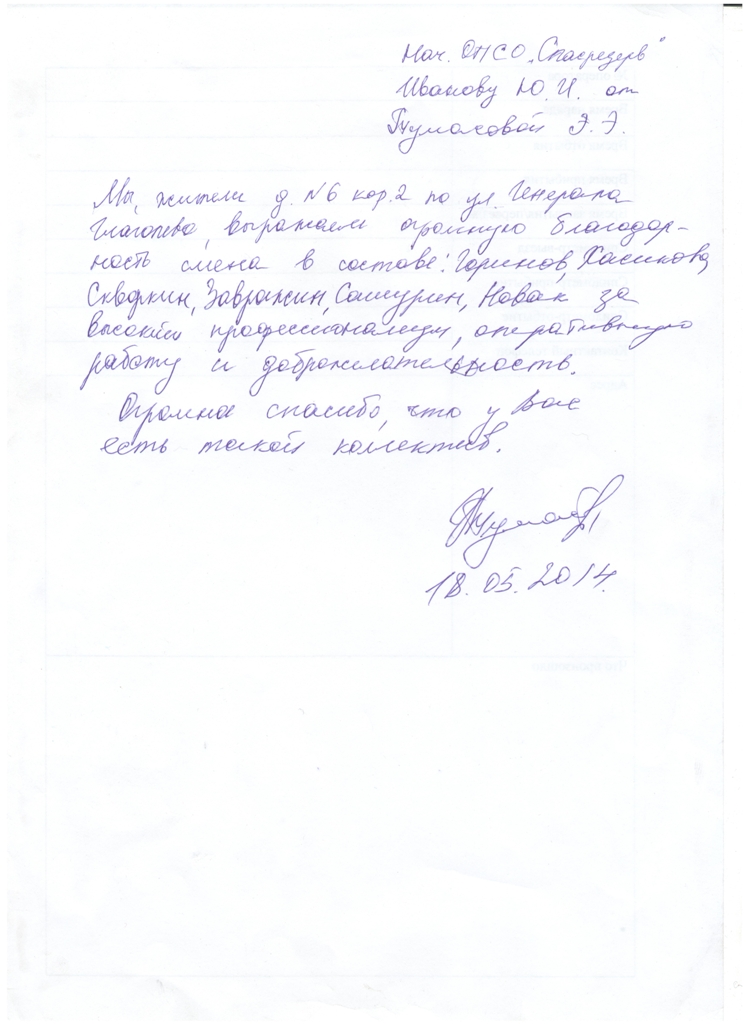 Нач. ОПСО „Спасрезерв"
Иванову Ю.И. от
Э.Э.
Мы, жители д. №6 кор.2 по ул. Генерала
Глаголева, выражаем огромную благодар-
ность смена в составе: Горинов, Хасикова,
Скворкин, Завражин, Сашурин, Новак за
высокий профессионализм, оперативную
работу и доброжелательность.
Огромна спасибо, что у Вас
есть такой коллектив.
18.05.2014.